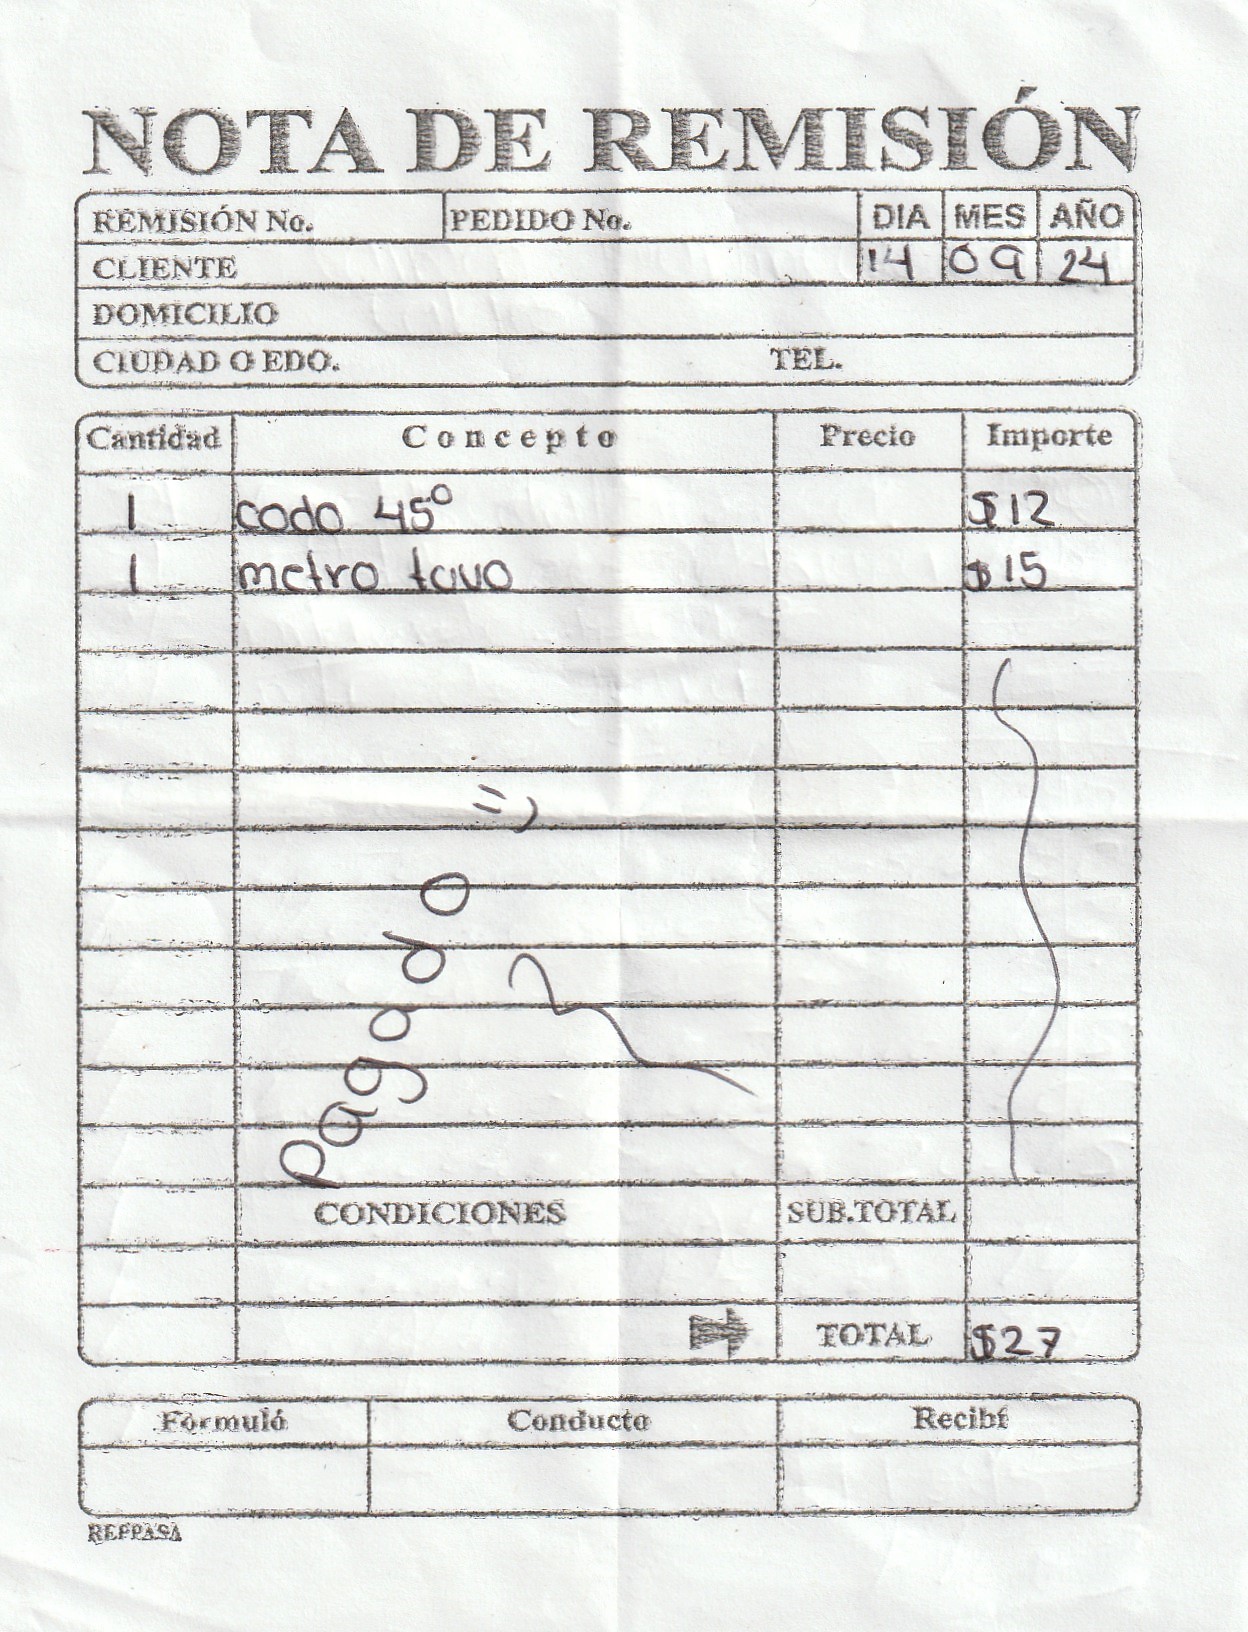 NOTA DE REMISIÓN
REMISIÓN No. PEDIDO No. DIA MES AÑO
CLIENTE 14 09 24
DOMICILIO
CIUDAD O EDO. TEL.
Cantidad Concepto Precio Importe
1 codo 45° $12
1 metro tavo $15
=)
Pagado
CONDICIONES SUB.TOTAL
TOTAL $27
Formuló Conducto Recibí
REPPASA